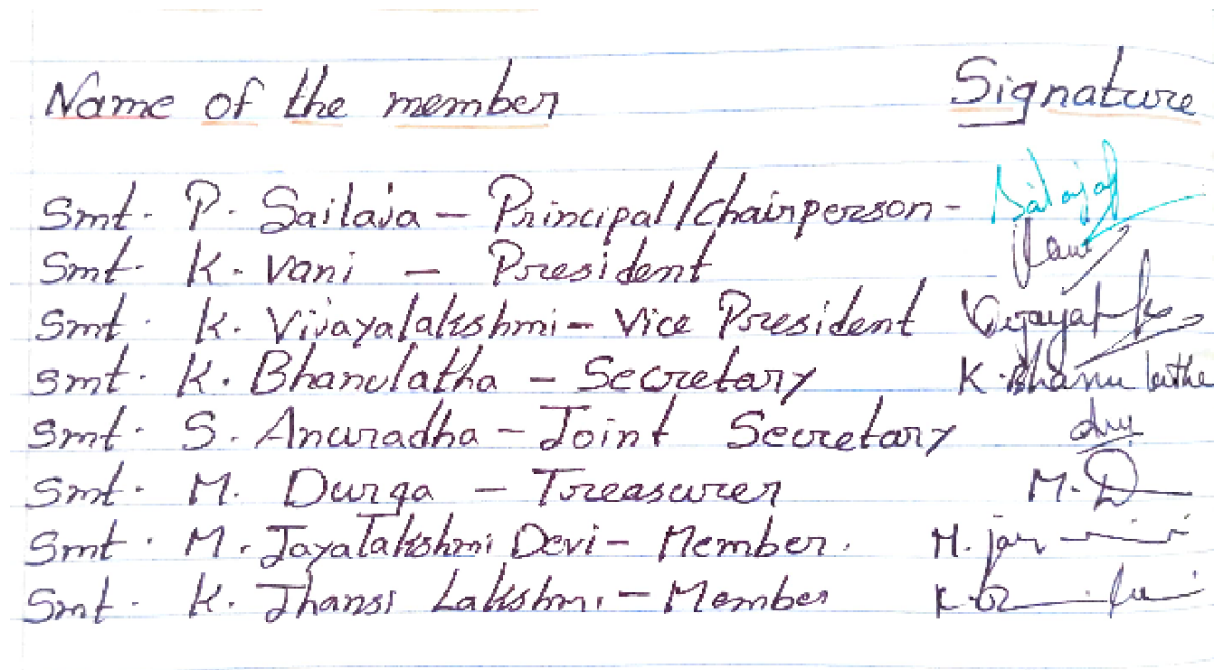 Name of the member Signature
Smt. P. Sailaja - Principal/chairperson - Sailaja
Smt. K. Vani - President Vani
Smt. K. Vijayalakshmi - Vice President
Smt. K. Bhanulatha - Secretary K. Bhanu latha
Smt. S. Anuradha - Joint Secretary
Smt. M. Durga - Treasurer M. D
Smt. M. Jayalakshmi Devi - Member. M. jay
Smt. K. Jhansi Lakshmi - Member K.